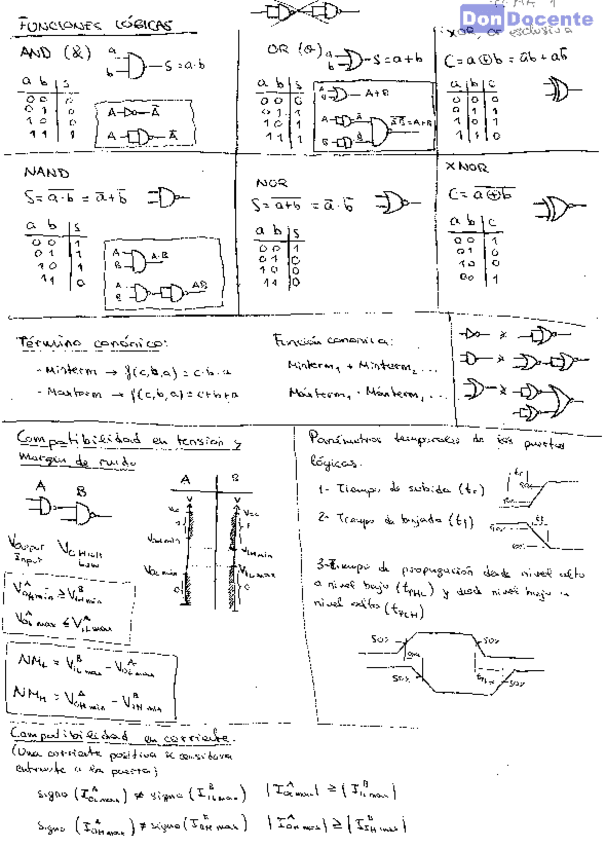 DonDocente
FUNCIONES LÓGICAS
AND (&)
a
b
S = a·b
a b s
0 0 0
0 1 0
1 0 0
1 1 1
A
A
OR
a
b
S = a + b
a b s
0 0 0
0 1 1
1 0 1
1 1 1
A + B
XOR, or exclusiva
C = a ⊕ b = a̅b + ab̅
a b c
0 0 0
0 1 1
1 0 1
1 1 0
NAND
S = a·b = a + b
a b s
0 0 1
0 1 1
1 0 1
1 1 0
A
B
A·B
NOR
S = a + b = a · b
a b s
0 0 1
0 1 0
1 0 0
1 1 0
XNOR
C = a ⊕ b
a b c
0 0 1
0 1 0
1 0 0
Término canónico:
- Minterm → f(c,b,a) = c·b·a
- Maxterm → f(c,b,a) = c+b+a
Función canónica:
Minterm₁ + Minterm₂ ...
Máxterm₁ · Máxterm₂ ...
Compatibilidad en tensión y
Margen de ruido
A B
Output
Input
A B
V V
Vcc Vcc
1 1
V OH min
V IH min
V OL máx
V IL max
0 0
V^A OH min ≥ V^B IH min
V^A OL max ≤ V^B IL max
NM L = V^B IL max - V^A OL max
NM H = V^A OH min - V^B IH min
Parámetros temporales de las puertas
lógicas.
1- Tiempo de subida (tr)
2- Tiempo de bajada (tf)
3- Tiempo de propagación desde nivel alto
a nivel bajo (tPHL) y desde nivel bajo a
nivel alto (tPLH)
tr
tf
50% 50%
tPHL
tPLH
50% 50%
Compatibilidad en corriente.
(Una corriente positiva se considera
entrante a la puerta)
signo (I^A OL max) ≠ signo (I^B IL max) |I^A OL max| ≥ |I^B IL max|
signo (I^A OH max) ≠ signo (I^B IH max) |I^A OH max| ≥ |I^B IH max|